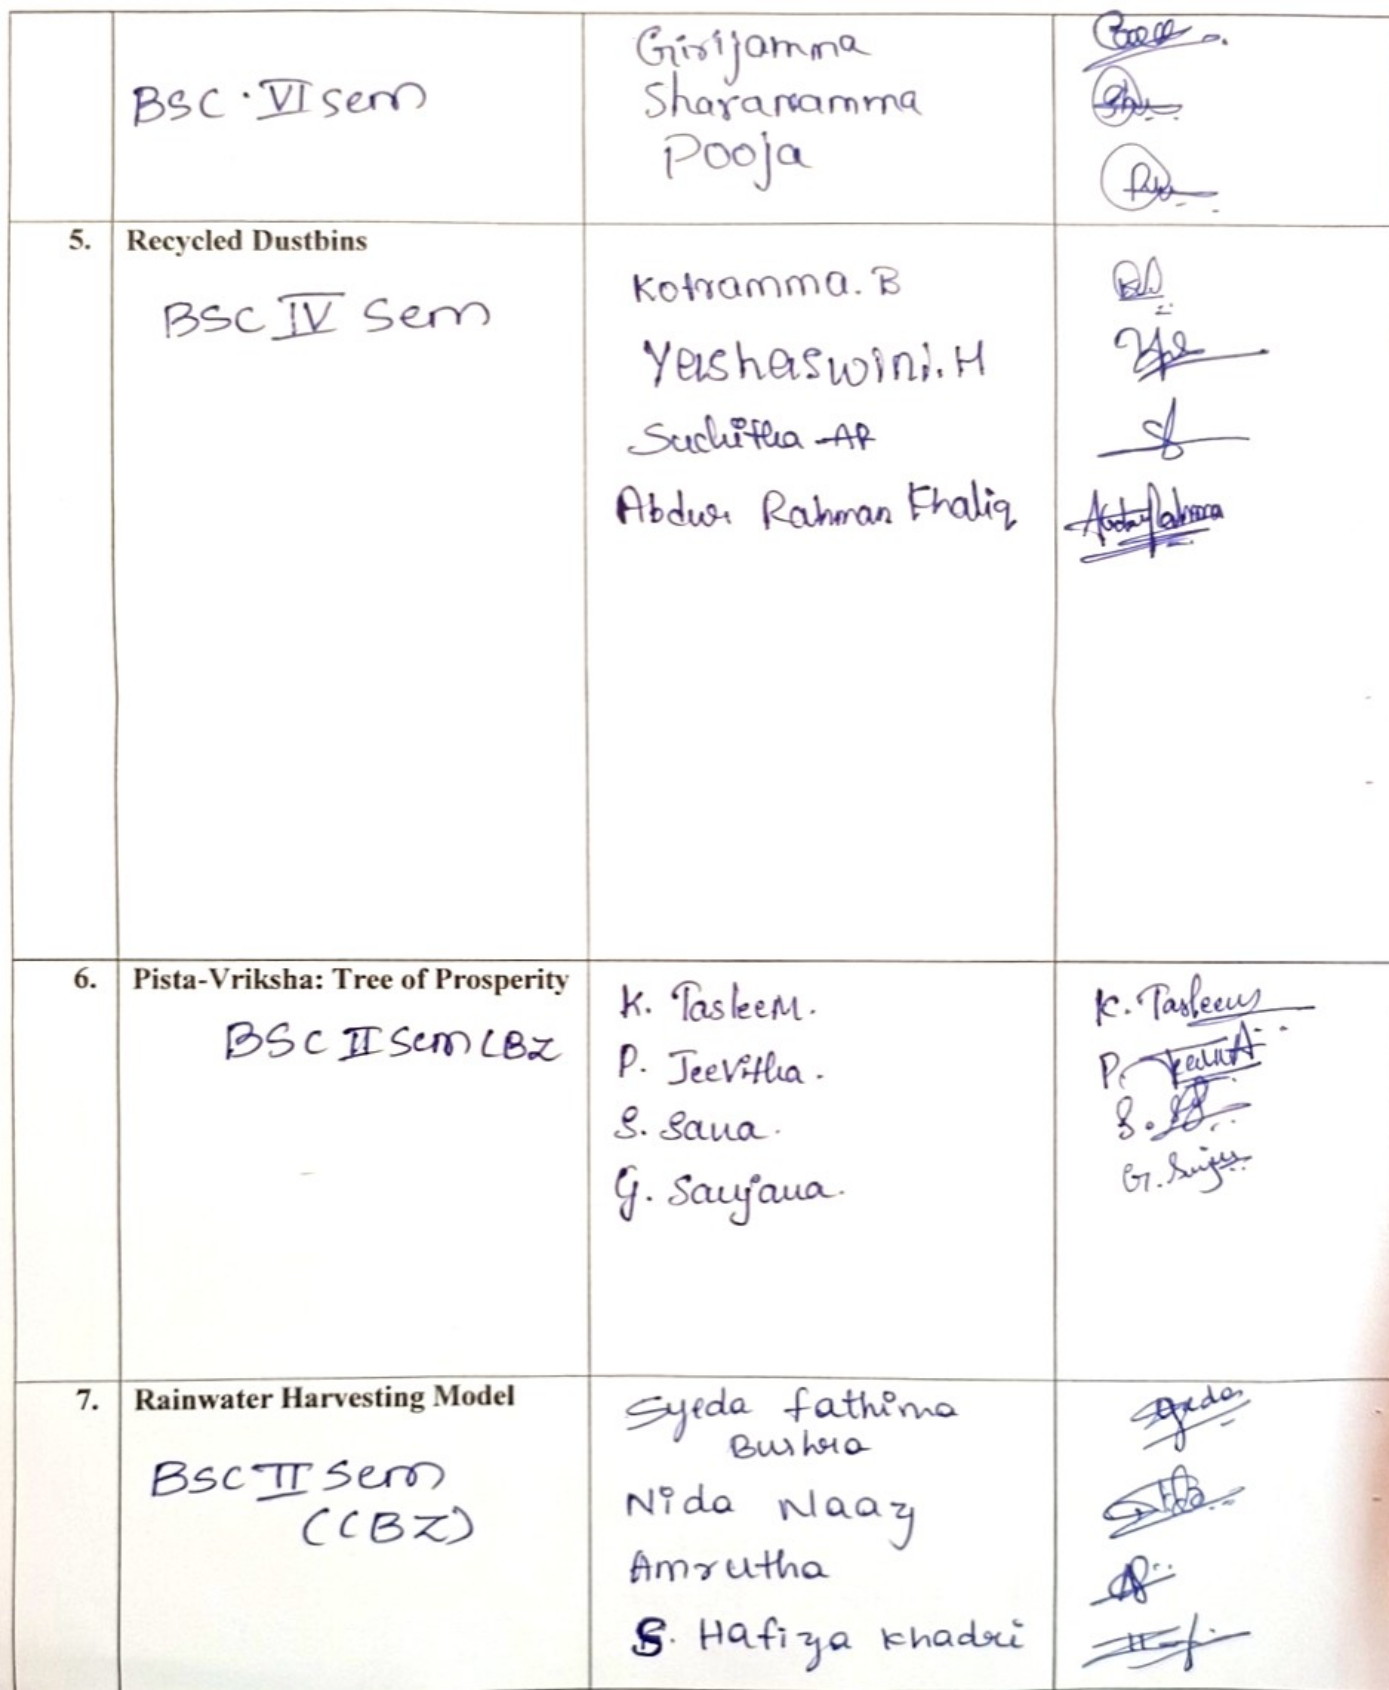 BSC · VI sem
Girijamma
Sharanamma
Pooja
5. Recycled Dustbins
BSC IV Sem
Kotramma. B
Yashaswini. H
Suchitha AR
Abdur Rahman Khaliq
6. Pista-Vriksha: Tree of Prosperity
BSC II Sem CBZ
K. Tasleem.
K. Tasleem
P. Jeevitha.
P.
S. Sana.
S.
G. Sanjana.
G.
7. Rainwater Harvesting Model
BSC II Sem
(CBZ)
Syeda fathima
Bushra
Syeda
Nida Naaz
Amrutha
S. Hafiza Khadri